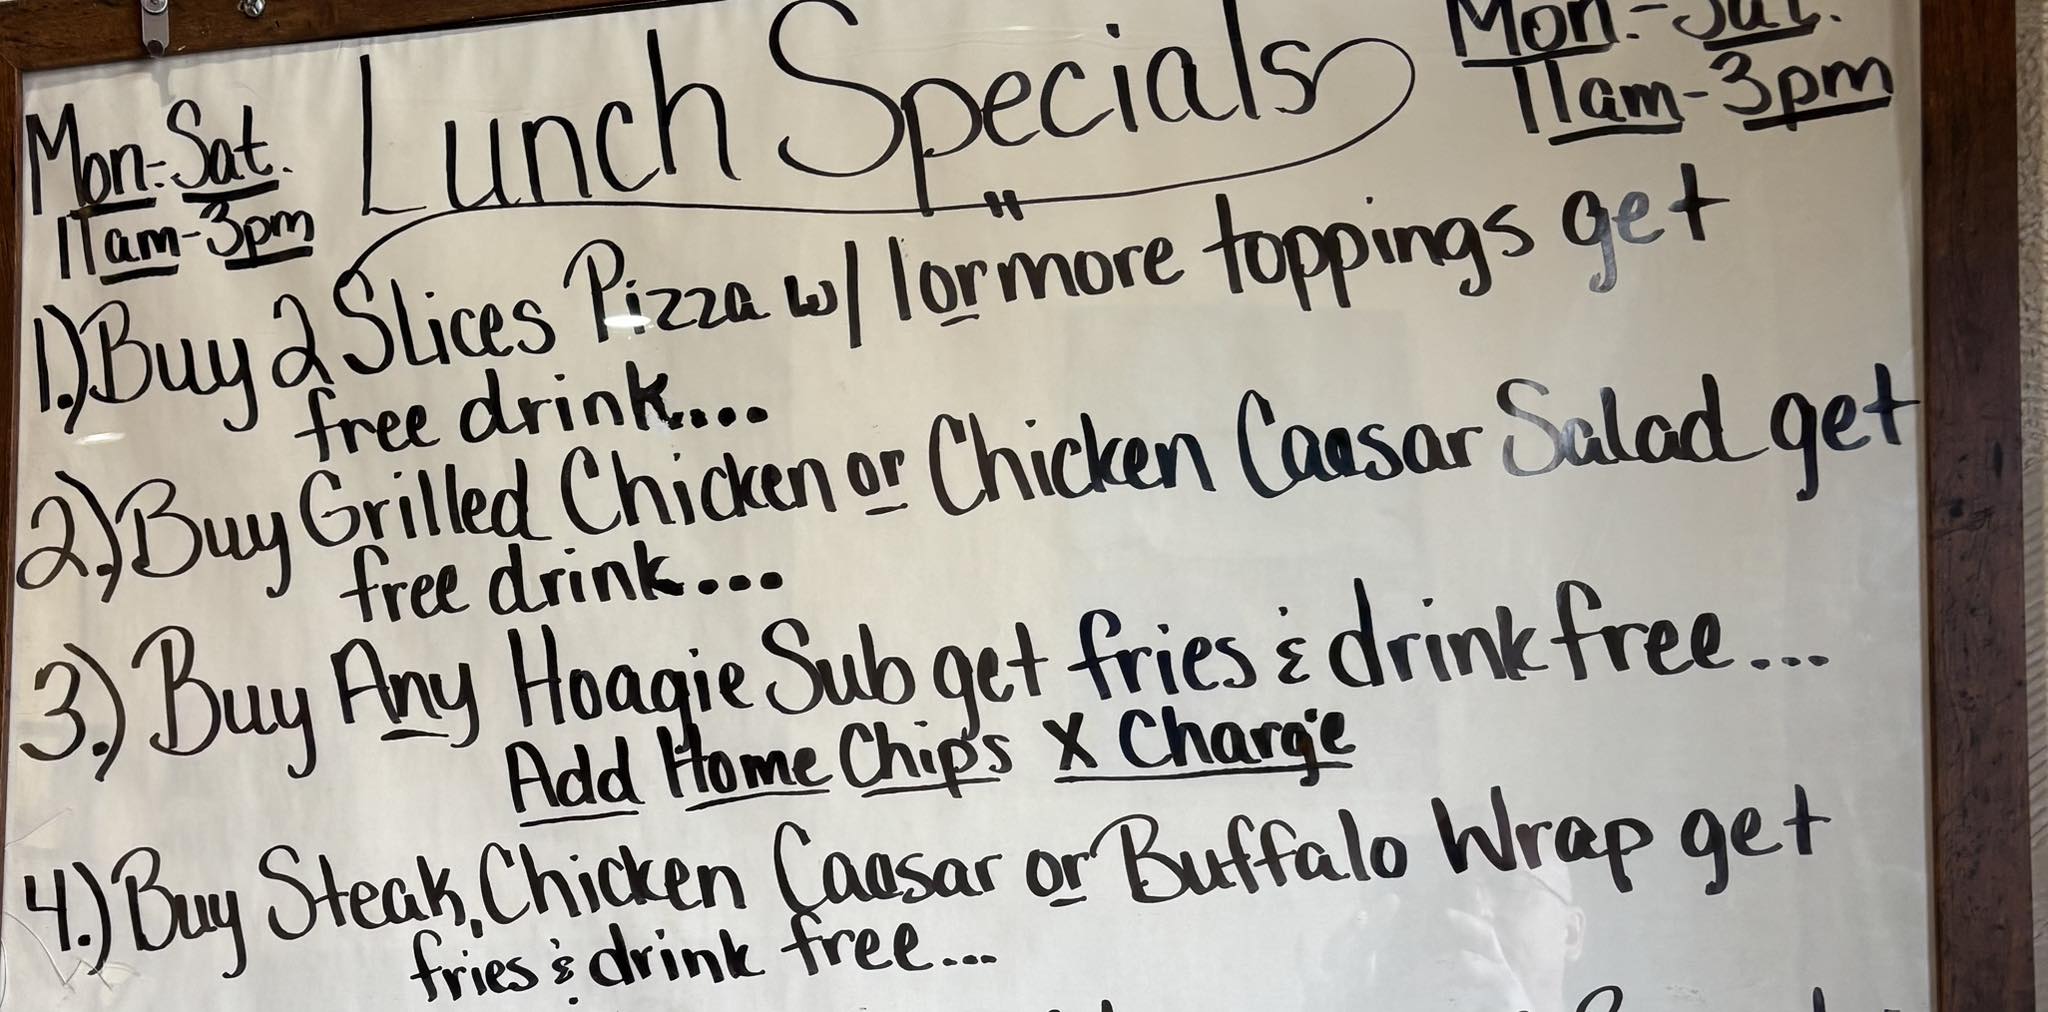 Lunch Specials
Mon.-Sat.
11am-3pm
Mon.-Sat.
11am-3pm
1.) Buy 2 Slices Pizza w/ 1 or more toppings get
free drink....
2.) Buy Grilled Chicken or Chicken Caesar Salad get
free drink...
3.) Buy Any Hoagie Sub get fries & drink free...
Add Home Chips X Charge
4.) Buy Steak, Chicken Caesar or Buffalo Wrap get
fries & drink free...